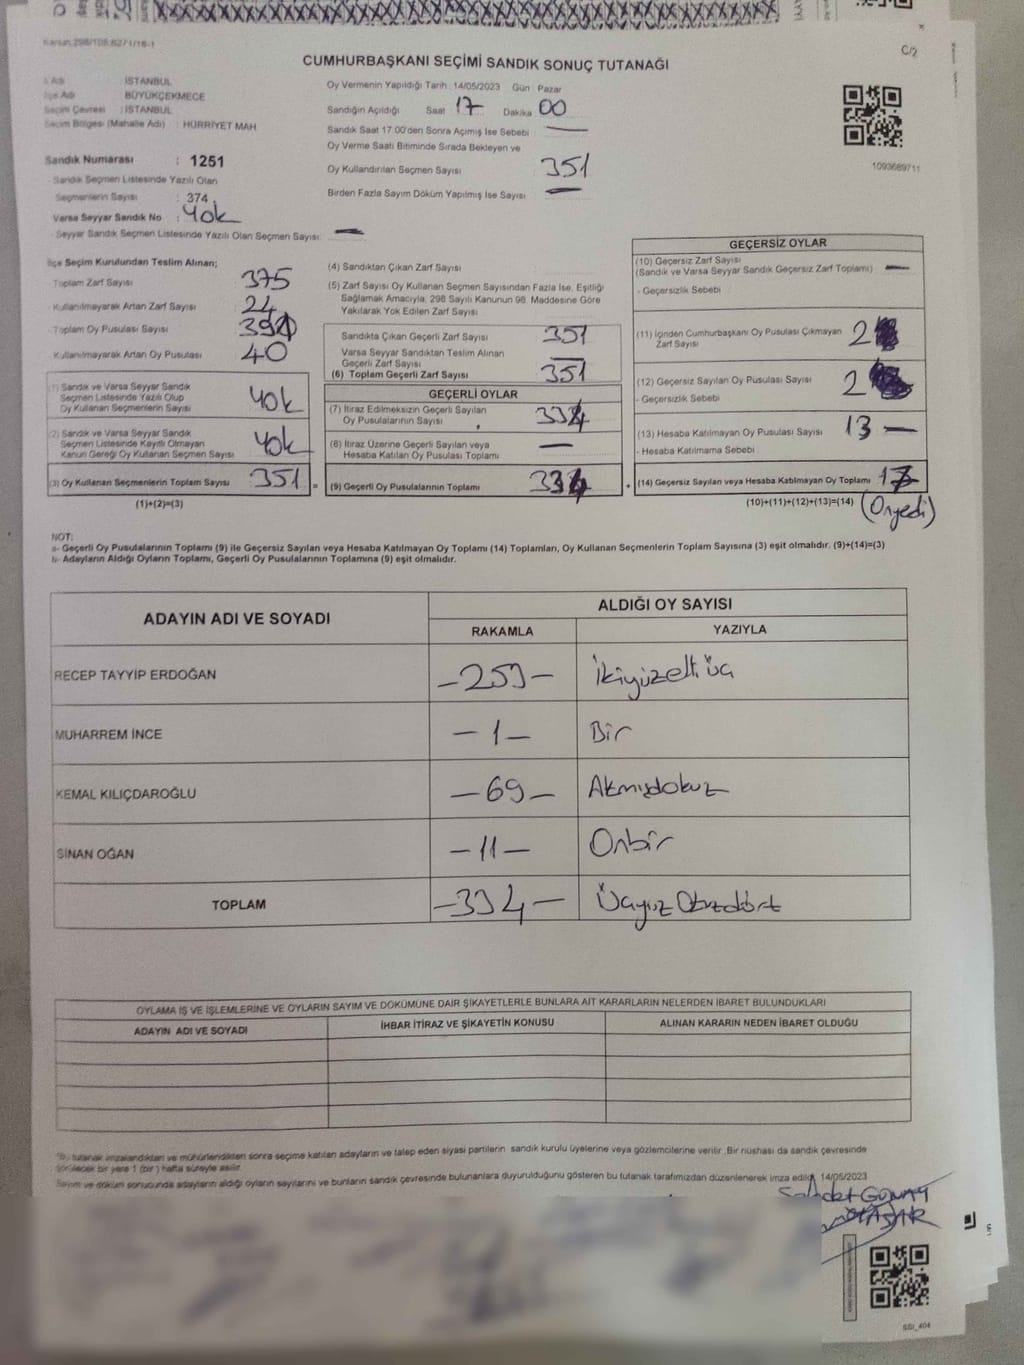 Kanun:298/105,6271/16-1
C/2
CUMHURBAŞKANI SEÇİMİ SANDIK SONUÇ TUTANAĞI
İl Adı : İSTANBUL
İlçe Adı : BÜYÜKÇEKMECE
Seçim Çevresi : İSTANBUL
Seçim Bölgesi (Mahalle Adı) : HÜRRİYET MAH
Sandık Numarası : 1251
Sandık Seçmen Listesinde Yazılı Olan
Seçmenlerin Sayısı : 374
Varsa Seyyar Sandık No : Yok
Seyyar Sandık Seçmen Listesinde Yazılı Olan Seçmen Sayısı: —
Oy Vermenin Yapıldığı Tarih : 14/05/2023 Gün : Pazar
Sandığın Açıldığı Saat 17 Dakika 00
Sandık Saat 17:00'den Sonra Açımış İse Sebebi : —
Oy Verme Saati Bitiminde Sırada Bekleyen ve
Oy Kullandırılan Seçmen Sayısı 351
Birden Fazla Sayım Döküm Yapılmış İse Sayısı —
1093689711
İlçe Seçim Kurulundan Teslim Alınan;
Toplam Zarf Sayısı 375
Kullanılmayarak Artan Zarf Sayısı 24
Toplam Oy Pusulası Sayısı 391
Kullanılmayarak Artan Oy Pusulası 40
(1) Sandık ve Varsa Seyyar Sandık
Seçmen Listesinde Yazılı Olup
Oy Kullanan Seçmenlerin Sayısı Yok
(2) Sandık ve Varsa Seyyar Sandık
Seçmen Listesinde Kayıtlı Olmayan
Kanun Gereği Oy Kullanan Seçmen Sayısı Yok
(3) Oy Kullanan Seçmenlerin Toplam Sayısı 351 =
(1)+(2)=(3)
(4) Sandıktan Çıkan Zarf Sayısı
(5) Zarf Sayısı Oy Kullanan Seçmen Sayısından Fazla İse, Eşitliği
Sağlamak Amacıyla, 298 Sayılı Kanunun 98. Maddesine Göre
Yakılarak Yok Edilen Zarf Sayısı
Sandıkta Çıkan Geçerli Zarf Sayısı 351
Varsa Seyyar Sandıktan Teslim Alınan
Geçerli Zarf Sayısı —
(6) Toplam Geçerli Zarf Sayısı 351
GEÇERLİ OYLAR
(7) İtiraz Edilmeksizin Geçerli Sayılan
Oy Pusulalarının Sayısı 334
(8) İtiraz Üzerine Geçerli Sayılan veya
Hesaba Katılan Oy Pusulası Toplamı —
(9) Geçerli Oy Pusulalarının Toplamı 334 +
GEÇERSİZ OYLAR
(10) Geçersiz Zarf Sayısı
(Sandık ve Varsa Seyyar Sandık Geçersiz Zarf Toplamı) —
- Geçersizlik Sebebi
(11) İçinden Cumhurbaşkanı Oy Pusulası Çıkmayan
Zarf Sayısı 2
(12) Geçersiz Sayılan Oy Pusulası Sayısı 2
- Geçersizlik Sebebi
(13) Hesaba Katılmayan Oy Pusulası Sayısı 13 —
- Hesaba Katılmama Sebebi
(14) Geçersiz Sayılan veya Hesaba Katılmayan Oy Toplamı 17
(10)+(11)+(12)+(13)=(14) (Onyedi)
NOT:
a- Geçerli Oy Pusulalarının Toplamı (9) ile Geçersiz Sayılan veya Hesaba Katılmayan Oy Toplamı (14) Toplamları, Oy Kullanan Seçmenlerin Toplam Sayısına (3) eşit olmalıdır. (9)+(14)=(3)
b- Adayların Aldığı Oyların Toplamı, Geçerli Oy Pusulalarının Toplamına (9) eşit olmalıdır.
ADAYIN ADI VE SOYADI ALDIĞI OY SAYISI
RAKAMLA YAZIYLA
RECEP TAYYİP ERDOĞAN -253- İkiyüzelli üç
MUHARREM İNCE -1- Bir
KEMAL KILIÇDAROĞLU -69- Atmışdokuz
SİNAN OĞAN -11- Onbir
TOPLAM -334- Üçyüz Otuzdört
OYLAMA İŞ VE İŞLEMLERİNE VE OYLARIN SAYIM VE DÖKÜMÜNE DAİR ŞİKAYETLERLE BUNLARA AİT KARARLARIN NELERDEN İBARET BULUNDUKLARI
ADAYIN ADI VE SOYADI İHBAR İTİRAZ VE ŞİKAYETİN KONUSU ALINAN KARARIN NEDEN İBARET OLDUĞU
*Bu tutanak imzalandıktan ve mühürlendikten sonra seçime katılan adayların ve talep eden siyasi partilerin sandık kurulu üyelerine veya gözlemcilerine verilir. Bir nüshası da sandık çevresinde
görülecek bir yere 1 (bir) hafta süreyle asılır.
Sayım ve döküm sonucunda adayların aldığı oyların sayılarını ve bunların sandık çevresinde bulunanlara duyurulduğunu gösteren bu tutanak tarafımızdan düzenlenerek imza edildi. 14/05/2023
GÜNAY
SSI_404